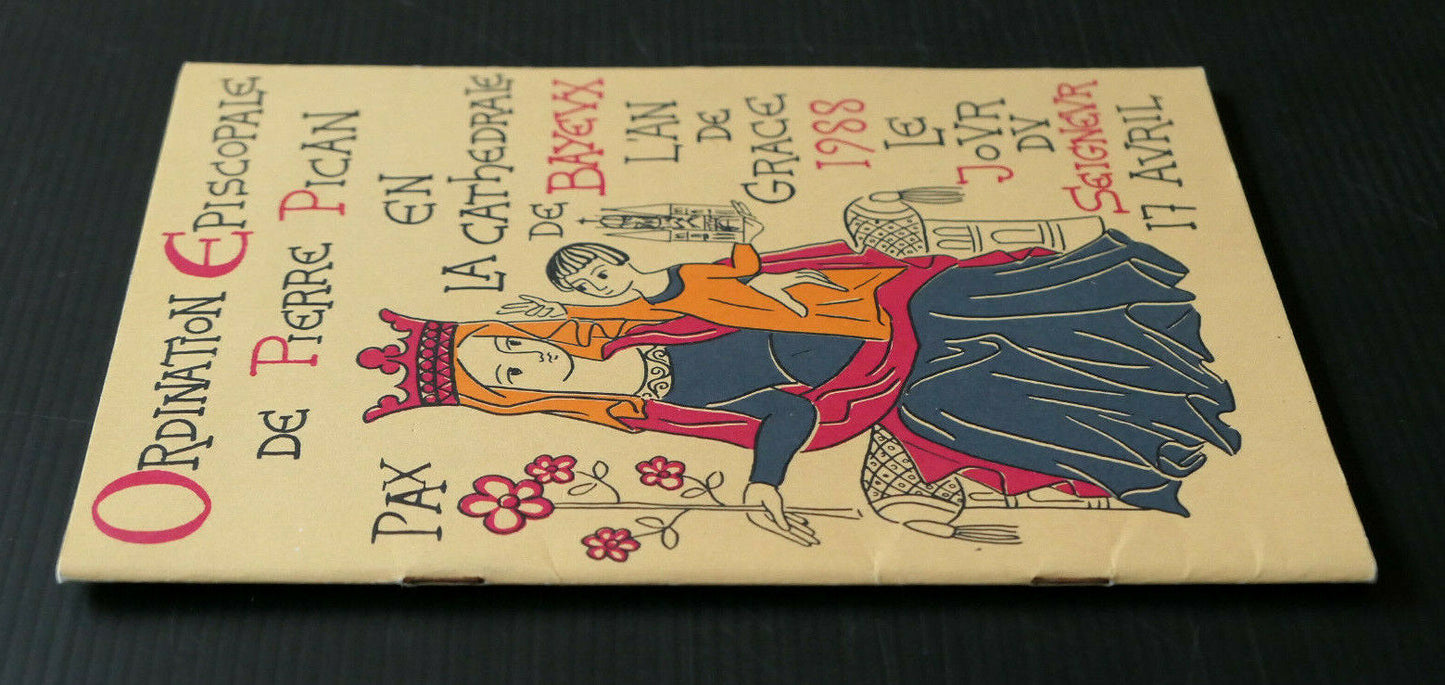 ORDINATION EPISCOPALE
DE PIERRE PICAN
PAX
EN
LA CATHEDRALE
DE BAYEVX
L'AN
DE
GRACE
1988
LE
JOVR
DV
SEIGNEVR
17 AVRIL